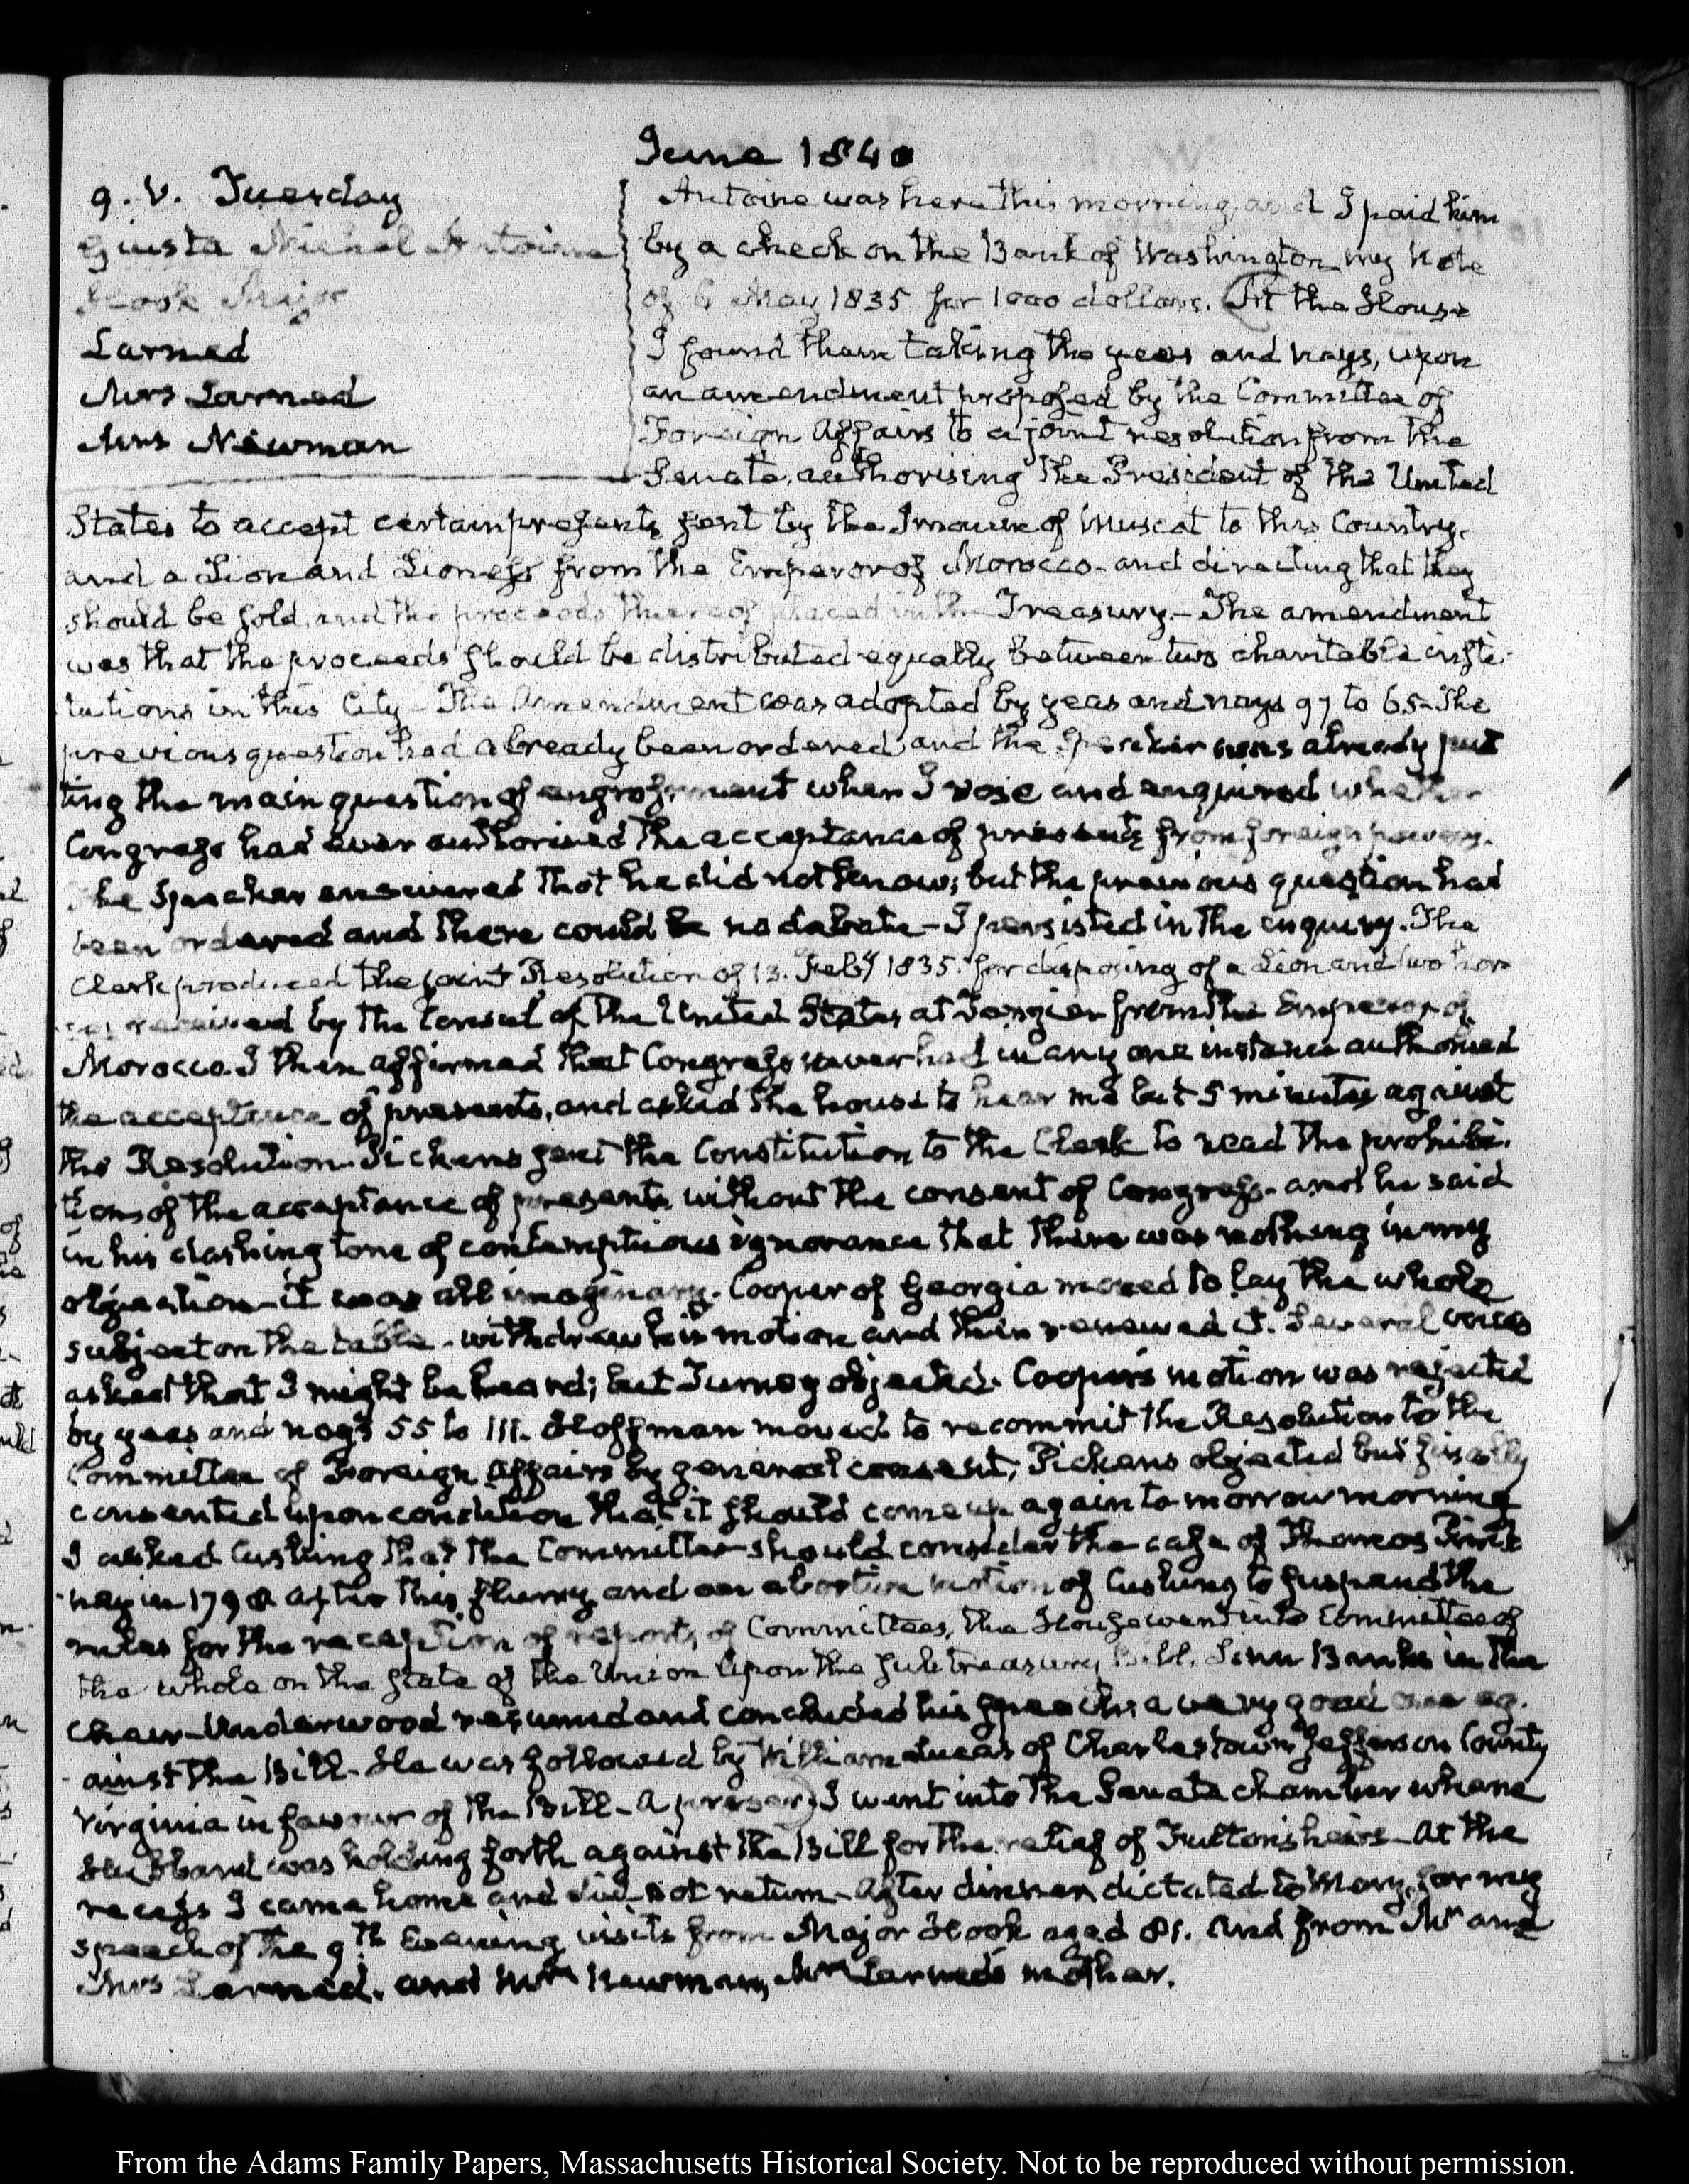 June 1840
9. V. Tuesday
Giusta Michel Antoine
Hook Major
Larned
Mrs Larned
Mrs Newman
Antoine was here this morning, and I paid him
by a check on the Bank of Washington my Note
of 6 May 1835 for 1000 dollars. At the House
I found them taking the yeas and nays, upon
an amendment proposed by the Committee of
Foreign Affairs to a joint resolution from the
Senate, authorising the President of the United
States to accept certain presents sent by the Imaum of Muscat to this Country,
and a Lion and Lioness from the Emperor of Morocco - and directing that they
should be sold, and the proceeds thereof placed in the Treasury. - The amendment
was that the proceeds should be distributed equally between two charitable insti-
tutions in this City - The Amendment was adopted by yeas and nays 97 to 65 - The
previous question had already been ordered and the Speaker was already put
ting the main question of engrossment when I rose and enquired whether
Congress had ever authorised the acceptance of presents from foreign powers.
The Speaker answered that he did not know; but the previous question had
been ordered and there could be no debate - I persisted in the enquiry. The
Clerk produced the joint Resolution of 13. Feby 1835. for disposing of a Lion and two hor
ses received by the Consul of the United States at Tangier from the Emperor of
Morocco. I then affirmed that Congress never had in any one instance authorised
the acceptance of presents, and asked the house to hear me but 5 minutes against
the Resolution. Pickens sent the Constitution to the Clerk to read the prohibi-
tions of the acceptance of presents without the consent of Congress - and he said
in his dashing tone of contemptuous ignorance that there was nothing in my
objection - it was all imaginary. Cooper of Georgia moved to lay the whole
subject on the table - withdrew his motion and then renewed it. Several voices
asked that I might be heard; but Turney objected. Cooper's motion was rejected
by yeas and nays 55 to 111. Hoffman moved to recommit the Resolution to the
Committee of Foreign Affairs by general consent, Pickens objected but finally
consented upon condition that it should come up again to-morrow morning
I asked Cushing that the Committee should consider the case of Thomas Pinck
ney in 1798 After this flurry and an abortive motion of Cushing to suspend the
rules for the reception of reports of Committees, the House went into Committee of
the whole on the state of the Union upon the Subtreasury Bill. Linn Banks in the
Chair - Underwood resumed and concluded his speech, a very good one ag-
ainst the Bill. He was followed by William Lucas of Charlestown Jefferson County
Virginia in favour of the Bill - I went into the Senate chamber where
Hubbard was holding forth against the Bill for the relief of Fulton's heirs - At the
recess I came home and did not return - After dinner dictated to Mary, for my
speech of the 9th Evening visits from Major Hook aged 81. and from Mr and
Mrs Larned. and Mrs Newman, Mrs Larned's mother.
From the Adams Family Papers, Massachusetts Historical Society. Not to be reproduced without permission.